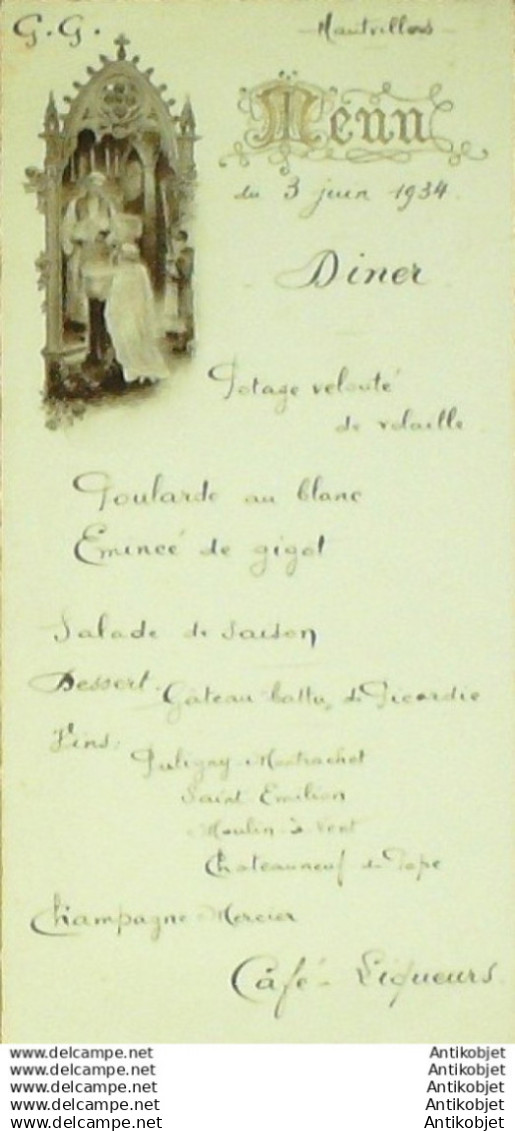 G.G. - Hautvillers -
Menu
du 3 juin 1934
Diner
Potage velouté
de volaille
Poularde au blanc
Emincé de gigot
Salade de saison
Dessert. Gâteau battu de Picardie
Vins:
Puligny-Montrachet
Saint Emilion
Moulin à Vent
Chateauneuf du Pape
Champagne Mercier
Café - Liqueurs
www.delcampe.net Antikobjet
www.delcampe.net Antikobjet
www.delcampe.net Antikobjet
www.delcampe.net Antikobjet
www.delcampe.net Antikobjet